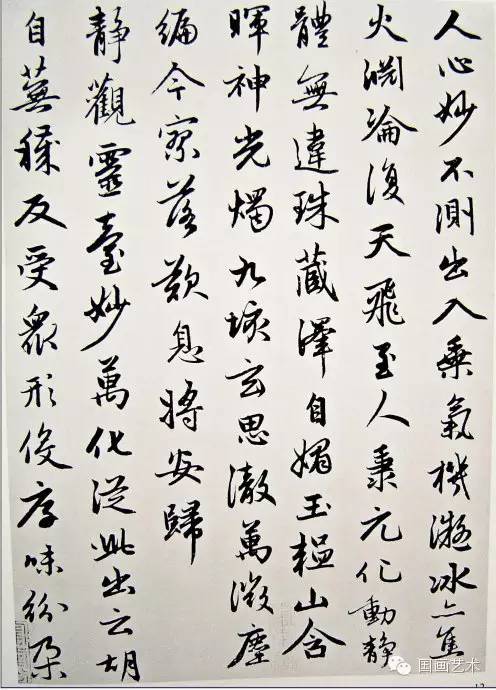 人心妙不測出入乗氣機凝冰亦焦
火淵淪復天飛至人秉元化動靜
體無違珠藏澤自媚玉韞山含
暉神光燭九垓玄思徹萬微塵
編今寥落歎息將安歸
靜觀靈臺妙萬化從此出云胡
自蕪穢反受眾形役厚味紛朶
国画艺术